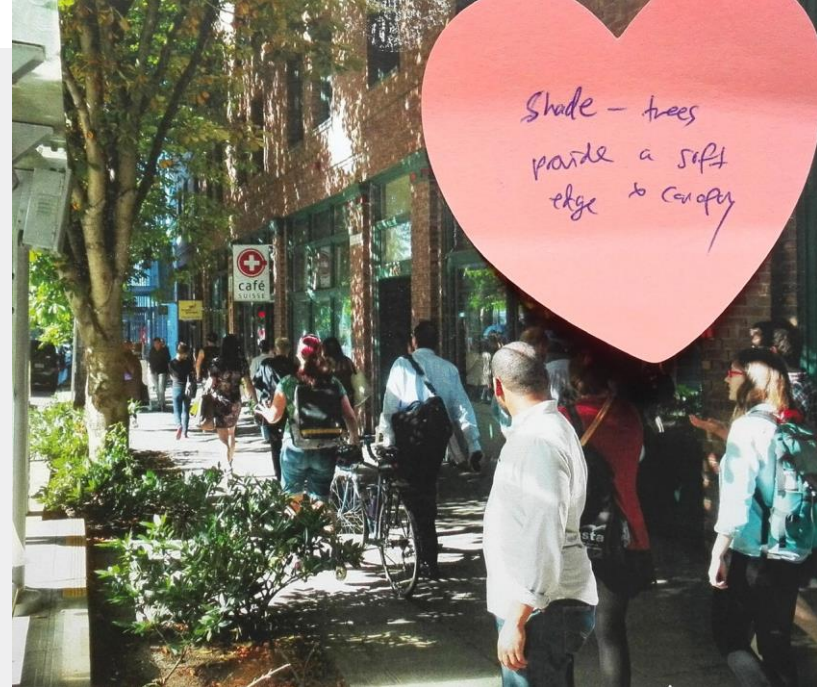 Shade – trees
provide a soft
edge to canopy
café
SUISSE